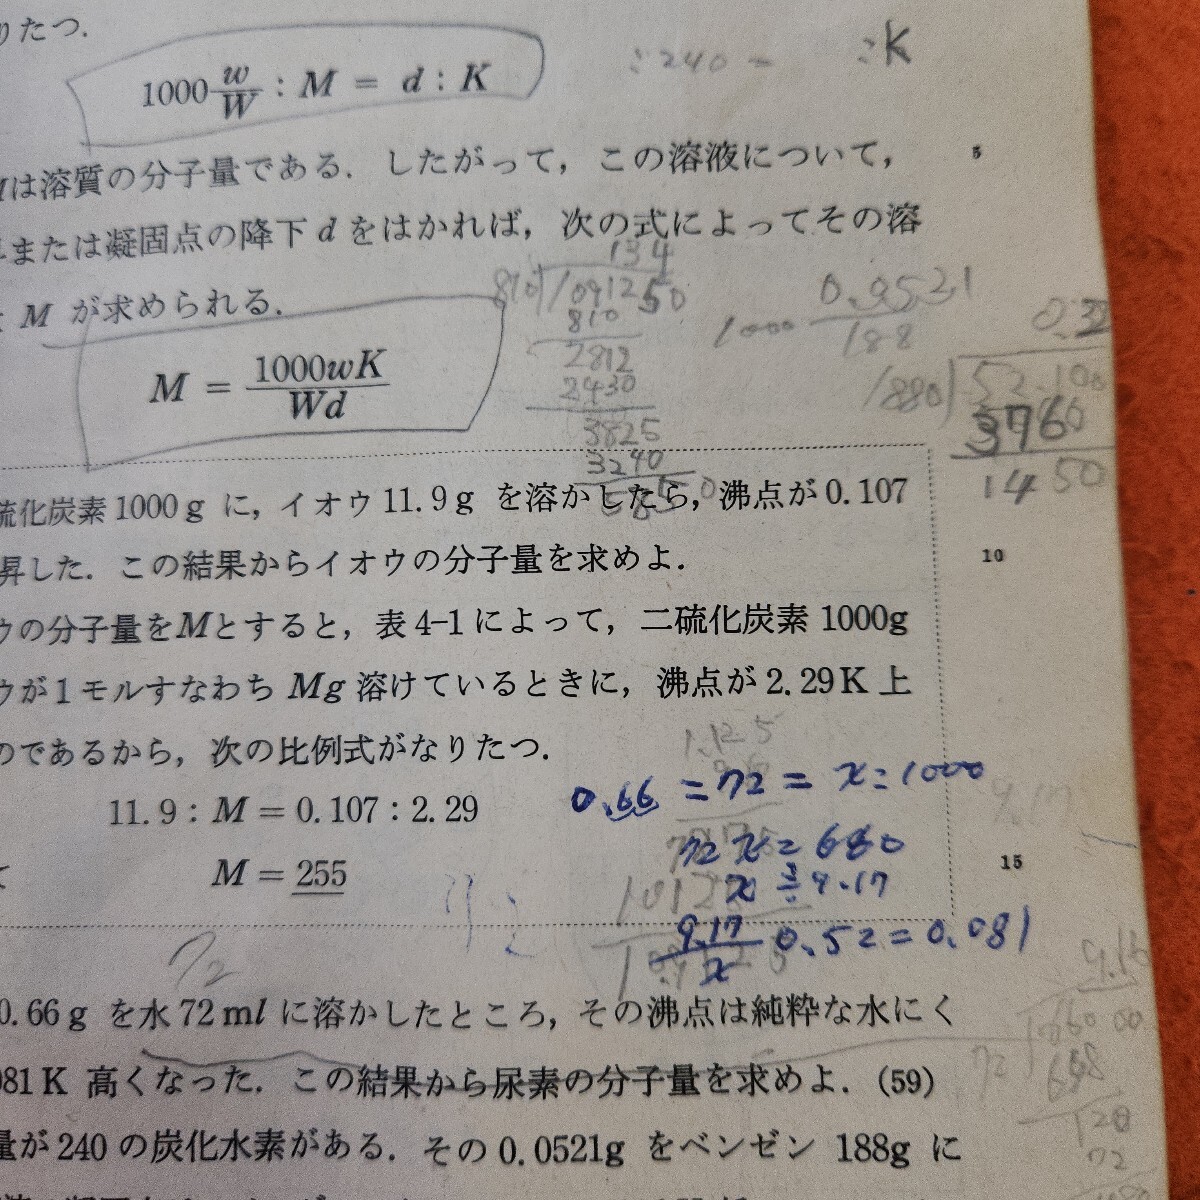 りたつ.
:240 = :K
1000 w/W : M = d : K
Mは溶質の分子量である. したがって, この溶液について,
5
または凝固点の降下 d をはかれば, 次の式によってその溶
M が求められる.
134
810 109125 50
810
2812
2430
3825
3240
1000 0.0521/188
0.32
1880 52.100
3760
1450
M = 1000wK/Wd
硫化炭素1000g に, イオウ11.9g を溶かしたら, 沸点が0.107
昇した. この結果からイオウの分子量を求めよ.
10
ウの分子量をMとすると, 表4-1によって, 二硫化炭素1000g
ウが1モルすなわち Mg 溶けているときに, 沸点が2.29K 上
のであるから, 次の比例式がなりたつ.
1.125
11.9 : M = 0.107 : 2.29
0.66 = 72 = x : 1000
72 x = 660
M = 255
x ≒ 9.17
15
9.17/x 0.52 = 0.081
72
0.66g を水72ml に溶かしたところ, その沸点は純粋な水にく
081K 高くなった. この結果から尿素の分子量を求めよ. (59)
72
648
120
72
量が240の炭化水素がある. その0.0521g をベンゼン 188g に